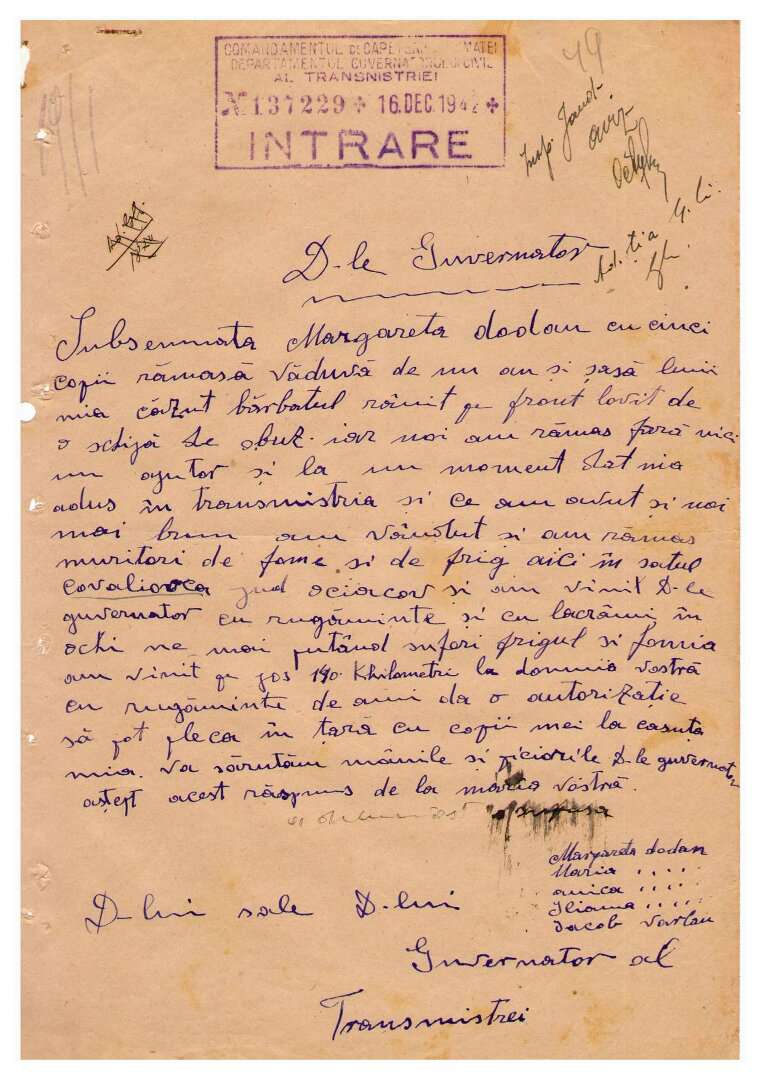 COMANDAMENTUL DE CAPETENIE AL ARMATEI
DEPARTAMENTUL GUVERNATORULUI CIVIL
AL TRANSNISTRIEI
№ 137229 + 16.DEC.1942 +
INTRARE
49
Insp. Jand.
aviz
D-le Guvernator
Subsemnata Margareta dodan cu cinci
copii rămasă văduvă de un an si șasă luni
mia căzut bărbatul rănit pe front lovit de
o schijă de obuz. iar noi am rămas fară nici
un ajutor și la un moment dat nia
adus în transmistria și ce am avut si noi
mai bun am vândut si am rămas
muritori de fome si de frig aici în satul
Covaliovca jud ociacov si am vinit D-le
guvernator cu rugăminte si cu lacrămi în
ochi ne mai putând suferi frigul si fomia
am vinit pe jos 190. Khilometri la domnia vostră
cu rugăminte de ami da o autorizație
să pot pleca în țară cu copii mei la casuța
mia. va sărutăm mânile si piciorile D-le guvernator
aștept acest răspuns de la maria vostră.
Margareta dodan
Maria " " "
anica " " "
Iliana " " "
Jacob Varlan
D-lui sale D-lui
Guvernator al
Transmistrei